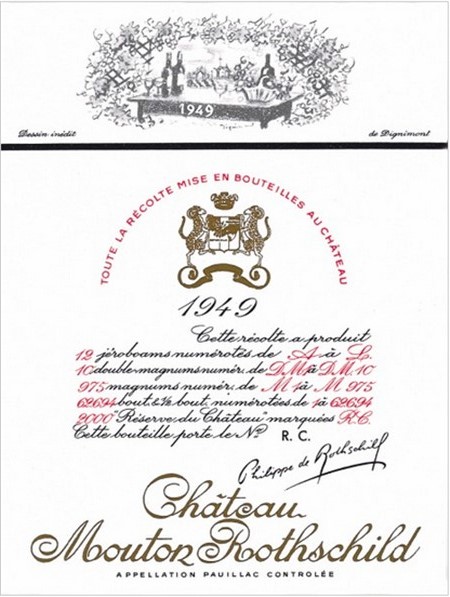 1949
Dignimont
Dessin inédit
de Dignimont
TOUTE LA RÉCOLTE MISE EN BOUTEILLES AU CHÂTEAU
1949
Cette récolte a produit
12 jéroboams numérotés de A à L
10 double-magnums numér. de DM1 à DM10
975 magnums numér. de M1 à M 975
62694 bout. & ½ bout. numérotées de 1 à 62694
2000 "Réserve du Château" marquées R.C.
Cette bouteille porte le No R. C.
Philippe de Rothschild
Château
Mouton Rothschild
APPELLATION PAUILLAC CONTROLÉE